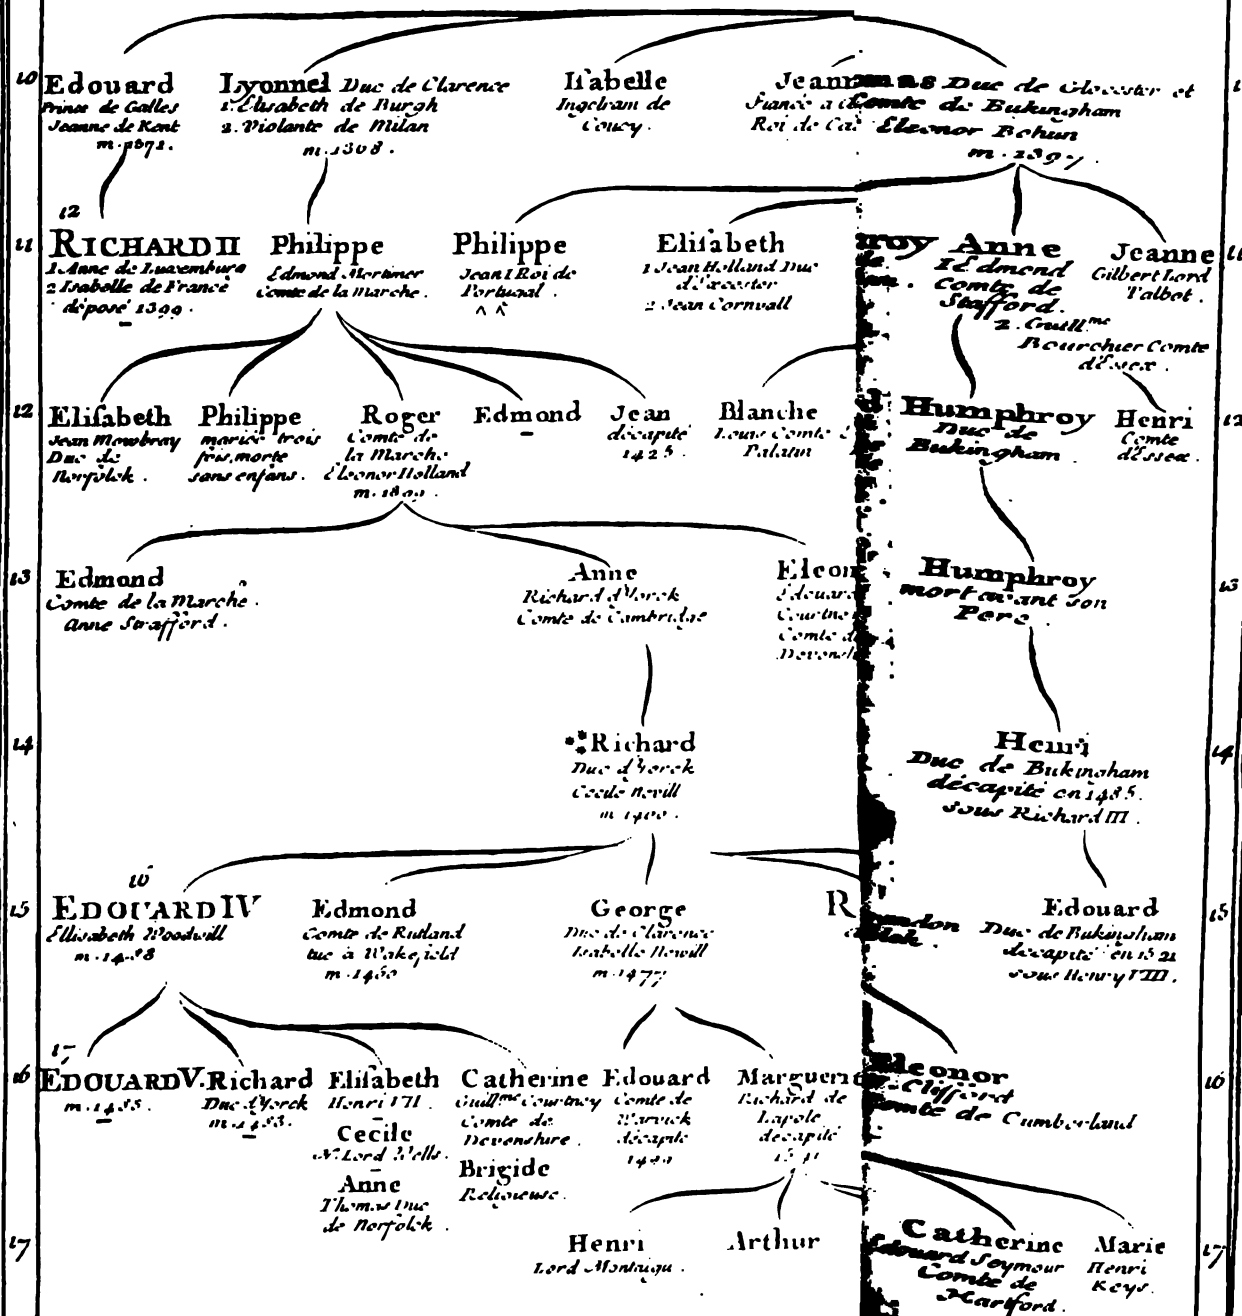 10
Edouard
Prince de Galles
Jeanne de Kent
m. 1371.
Lyonnel Duc de Clarence
1. Elisabeth de Burgh
2. Violante de Milan
m. 1368.
Isabelle
Ingelram de
Coucy.
Jeann
fiancée a
Roi de Cas
mas Duc de Glocester et
Comte de Bukingham
Eleonor Bohun
m. 1397.
11
12
RICHARD II
1. Anne de Luxembourg
2 Isabelle de France
déposé 1399.
Philippe
Edmond Mortimer
Comte de la Marche.
Philippe
Jean I Roi de
Portugal.
Elisabeth
1 Jean Holland Duc
d'Excester
2 Jean Cornvall
roy
Anne
1 Edmond
Comte de
Stafford.
2. Guill.me
Bourchier Comte
d'Essex.
Jeanne
Gilbert Lord
Talbot.
11
12
Elisabeth
Jean Mowbray
Duc de
Norfolck.
Philippe
mariée trois
fois, morte
sans enfans.
Roger
Comte de
la Marche
Eleonor Holland
Edmond
Jean
décapité
1425.
Blanche
Louis Comte
Palatin
Humphroy
Duc de
Bukingham.
Henri
Comte
d'Essex.
12
13
Edmond
Comte de la Marche.
Anne Strafford.
Anne
Richard d'Yorck
Comte de Cambridge
Eleon
Edouard
Courtne
Comte d
Devonsh
Humphroy
mort avant son
Pere.
13
14
Richard
Duc d'Yorck
Cecile Nevill
m. 1460.
Henri
Duc de Bukingham
décapité en 1485.
sous Richard III.
14
15
16
EDOUARD IV
Ellisabeth Woodwill
Edmond
Comte de Rutland
tué à Wakefield
m. 1460
George
Duc de Clarence
Isabelle Newill
m. 1477
R
andon
Edouard
Duc de Bukingham
décapité en 1521
sous Henry VIII.
15
16
17
EDOUARD V.
Richard
Duc d'Yorck
m. 1483.
Elisabeth
Henri VII.
Cecile
N. Lord Wells.
Anne
Thomas Duc
de Norfolck.
Catherine
Guill.me Courtney
Comte de
Devonshire.
Brigide
Religieuse.
Edouard
Comte de
Warvick
décapité
1499
Marguerit
Richard de
Lapole
décapité
Eleonor
Clifford
Comte de Cumberland
16
17
Henri
Lord Montaigu.
Arthur
Catherine
Edouard Seymour
Comte de
Hartford.
Marie
Henri
Keys.
17